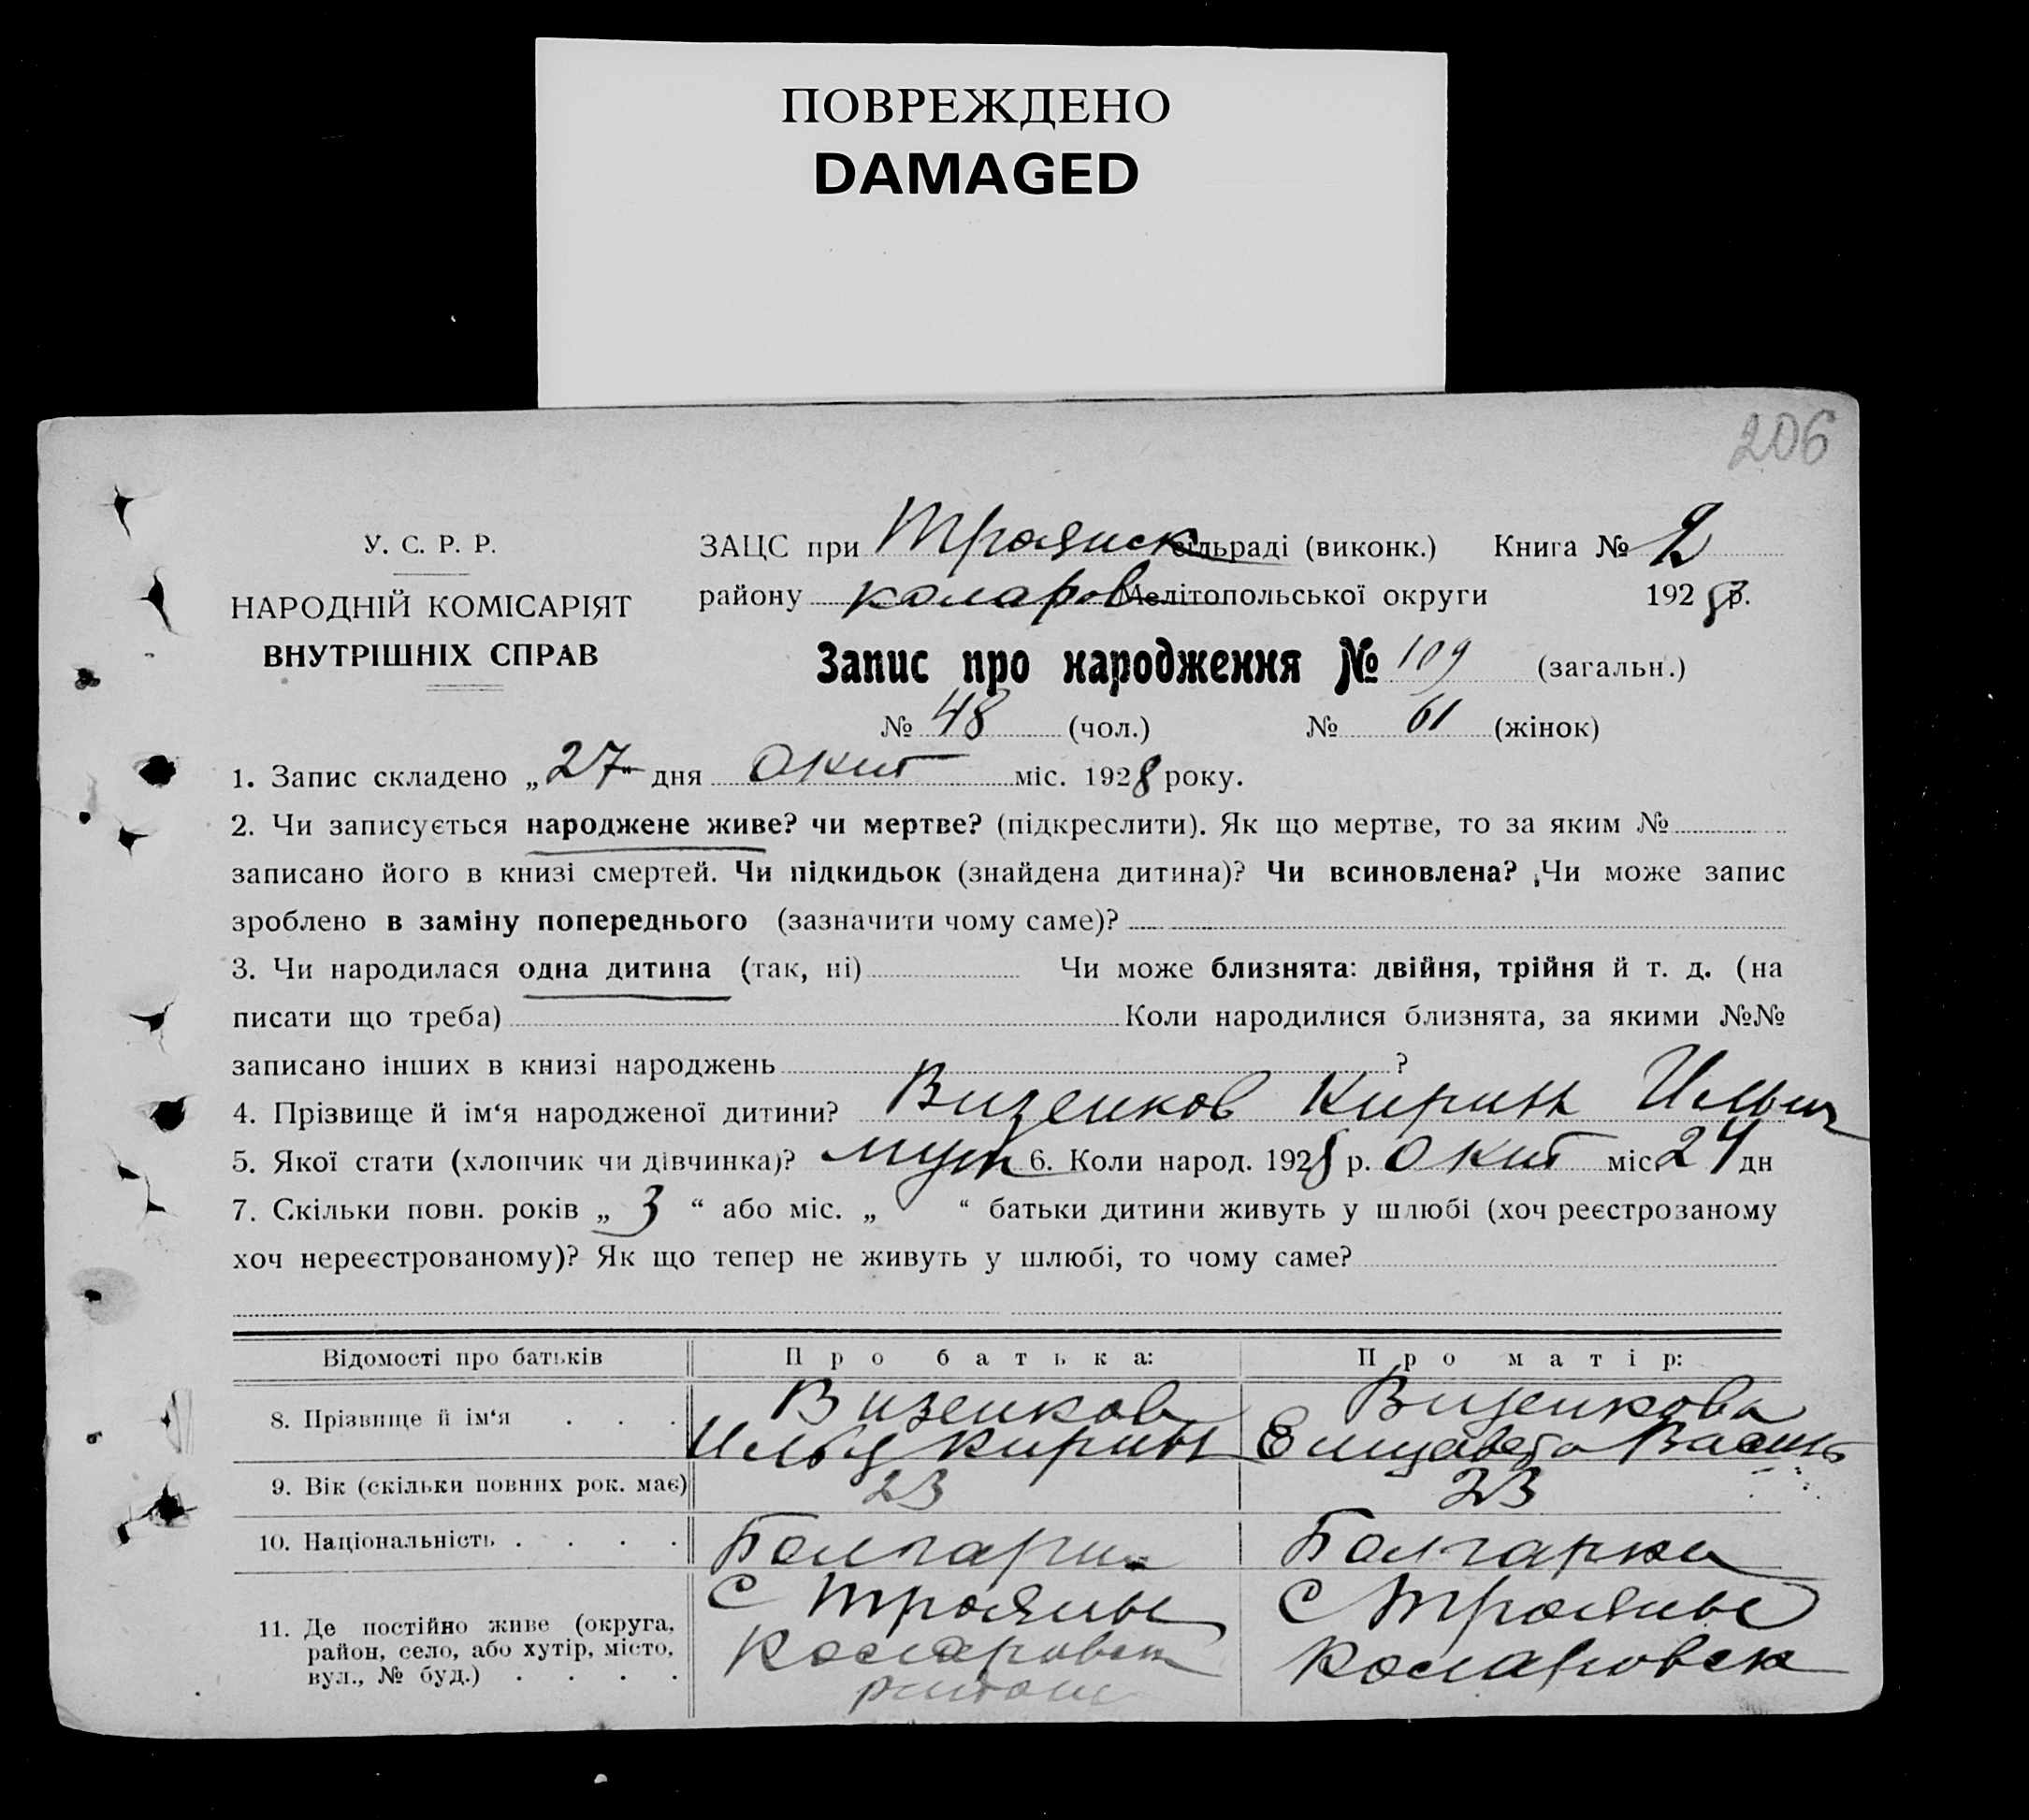 ПОВРЕЖДЕНО
DAMAGED
206
У. С. Р. Р.
НАРОДНІЙ КОМІСАРІЯТ
ВНУТРІШНІХ СПРАВ
ЗАЦС при Троянск сільраді (виконк.) Книга № 2
району Коларов Мелітопольської округи 1928 р.
Запис про народження № 109 (загальн.)
№ 48 (чол.) № 61 (жінок)
1. Запис складено „27“ дня Окт міс. 1928 року.
2. Чи записується народжене живе? чи мертве? (підкреслити). Як що мертве, то за яким №
записано його в книзі смертей. Чи підкидьок (знайдена дитина)? Чи всиновлена? Чи може запис
зроблено в заміну попереднього (зазначити чому саме)?
3. Чи народилася одна дитина (так, ні) Чи може близнята: двійня, трійня й т. д. (на
писати що треба) Коли народилися близнята, за якими №№
записано інших в книзі народжень ?
4. Прізвище й ім‘я народженої дитини? Визенков Кирил Ильич
5. Якої стати (хлопчик чи дівчинка)? муж 6. Коли народ. 1928 р. Окт міс. 24 дн
7. Скільки повн. років „ 3 “ або міс. „ “ батьки дитини живуть у шлюбі (хоч реєстрозаному
хоч нереєстрованому)? Як що тепер не живуть у шлюбі, то чому саме?
Відомості про батьків Про батька: Про матір:
8. Прізвище й ім‘я . . . Визенков Визенкова
Илья Кирил Елизавета Василь
9. Вік (скільки повних рок. має) 23 23
10. Національність . . . . Болгарин Болгарка
11. Де постійно живе (округа, С Трояны С Трояны
район, село, або хутір, місто, Коларовск Коларовск
вул., № буд.) . . . . район